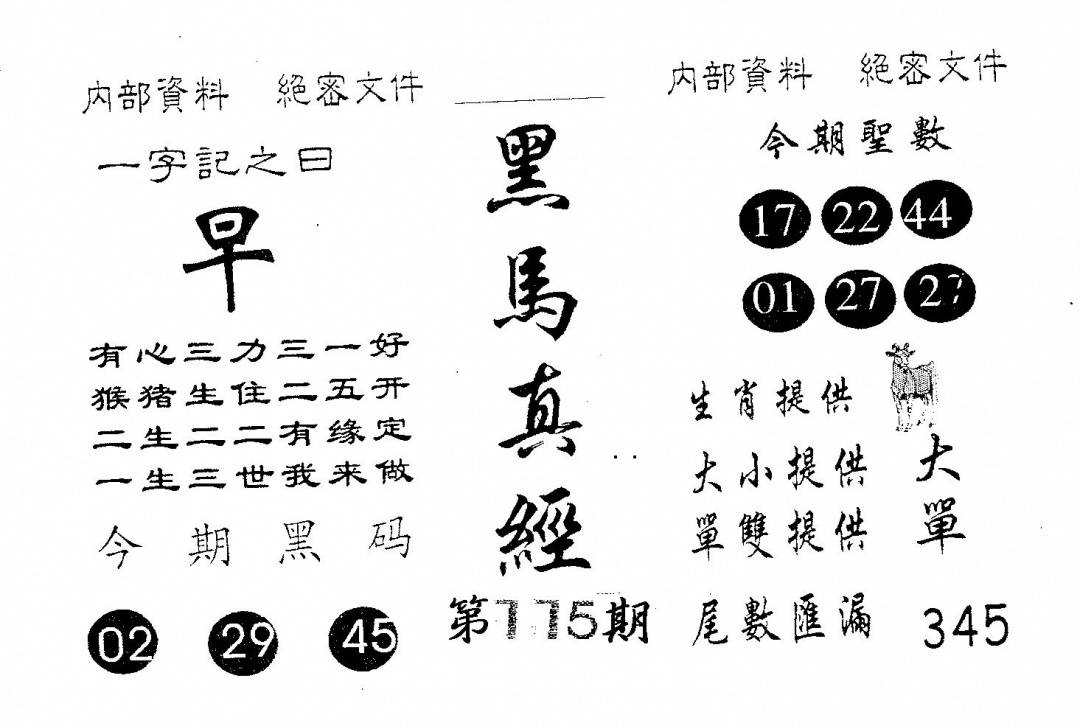 内部資料 絕密文件
一字記之曰
早
有心三力三一好
猴猪生住二五开
二生二二有缘定
一生三世我来做
今期黑码
02 29 45
黑馬真經
第115期
内部資料 絕密文件
今期聖數
17 22 44
01 27 27
生肖提供
大小提供 大
單雙提供 單
尾數匯漏 345